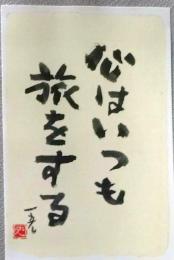 心はいつも
旅をする